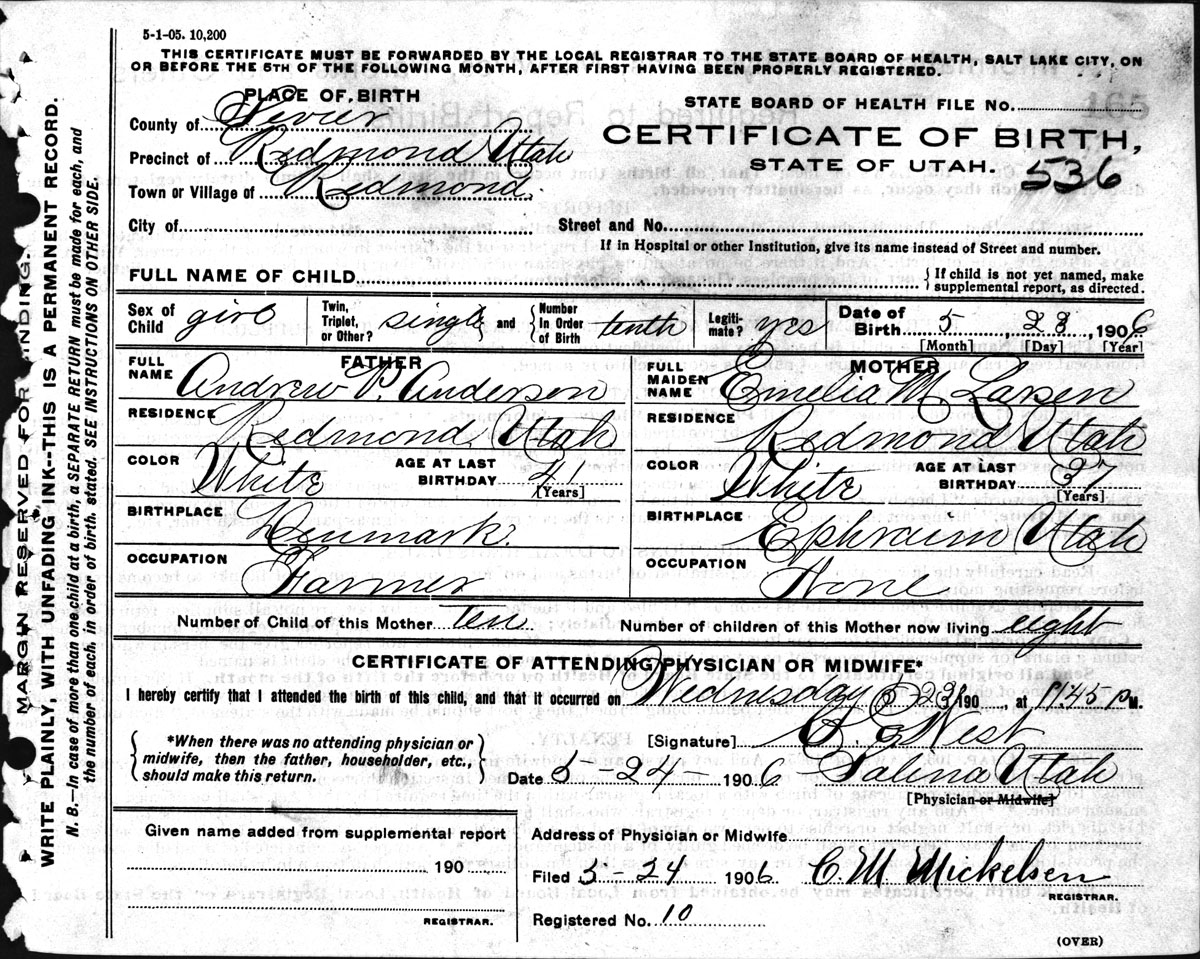 5-1-05. 10,200
THIS CERTIFICATE MUST BE FORWARDED BY THE LOCAL REGISTRAR TO THE STATE BOARD OF HEALTH, SALT LAKE CITY, ON
OR BEFORE THE 5TH OF THE FOLLOWING MONTH, AFTER FIRST HAVING BEEN PROPERLY REGISTERED.
PLACE OF BIRTH
County of Sevier
Precinct of Redmond Utah
Town or Village of Redmond.
City of
STATE BOARD OF HEALTH FILE No.
CERTIFICATE OF BIRTH,
STATE OF UTAH. 536
Street and No.
If in Hospital or other Institution, give its name instead of Street and number.
FULL NAME OF CHILD
If child is not yet named, make
supplemental report, as directed.
Sex of Child girl Twin, Triplet, or Other? single and Number in Order of Birth tenth Legitimate? yes Date of Birth 5 23, 1906
[Month] [Day] [Year]
FATHER
FULL NAME Andrew P. Anderson
RESIDENCE Redmond, Utah
COLOR White AGE AT LAST BIRTHDAY 41
[Years]
BIRTHPLACE Denmark.
OCCUPATION Farmer
MOTHER
FULL MAIDEN NAME Emelia M Larsen
RESIDENCE Redmond Utah
COLOR White AGE AT LAST BIRTHDAY 37
[Years]
BIRTHPLACE Ephraim Utah
OCCUPATION None
Number of Child of this Mother ten Number of children of this Mother now living eight
CERTIFICATE OF ATTENDING PHYSICIAN OR MIDWIFE*
I hereby certify that I attended the birth of this child, and that it occurred on Wednesday 5-23, 190 , at 11.45 P M.
*When there was no attending physician or
midwife, then the father, householder, etc.,
should make this return.
[Signature] West
Date 5-24- 1906 Salina Utah
[Physician or Midwife]
Given name added from supplemental report
190
REGISTRAR.
Address of Physician or Midwife
Filed 5-24 1906 C. M. Mickelsen
REGISTRAR.
Registered No. 10
(OVER)
MARGIN RESERVED FOR BINDING.
WRITE PLAINLY, WITH UNFADING INK--THIS IS A PERMANENT RECORD.
N. B.—In case of more than one child at a birth, a SEPARATE RETURN must be made for each, and
the number of each, in order of birth, stated. SEE INSTRUCTIONS ON OTHER SIDE.